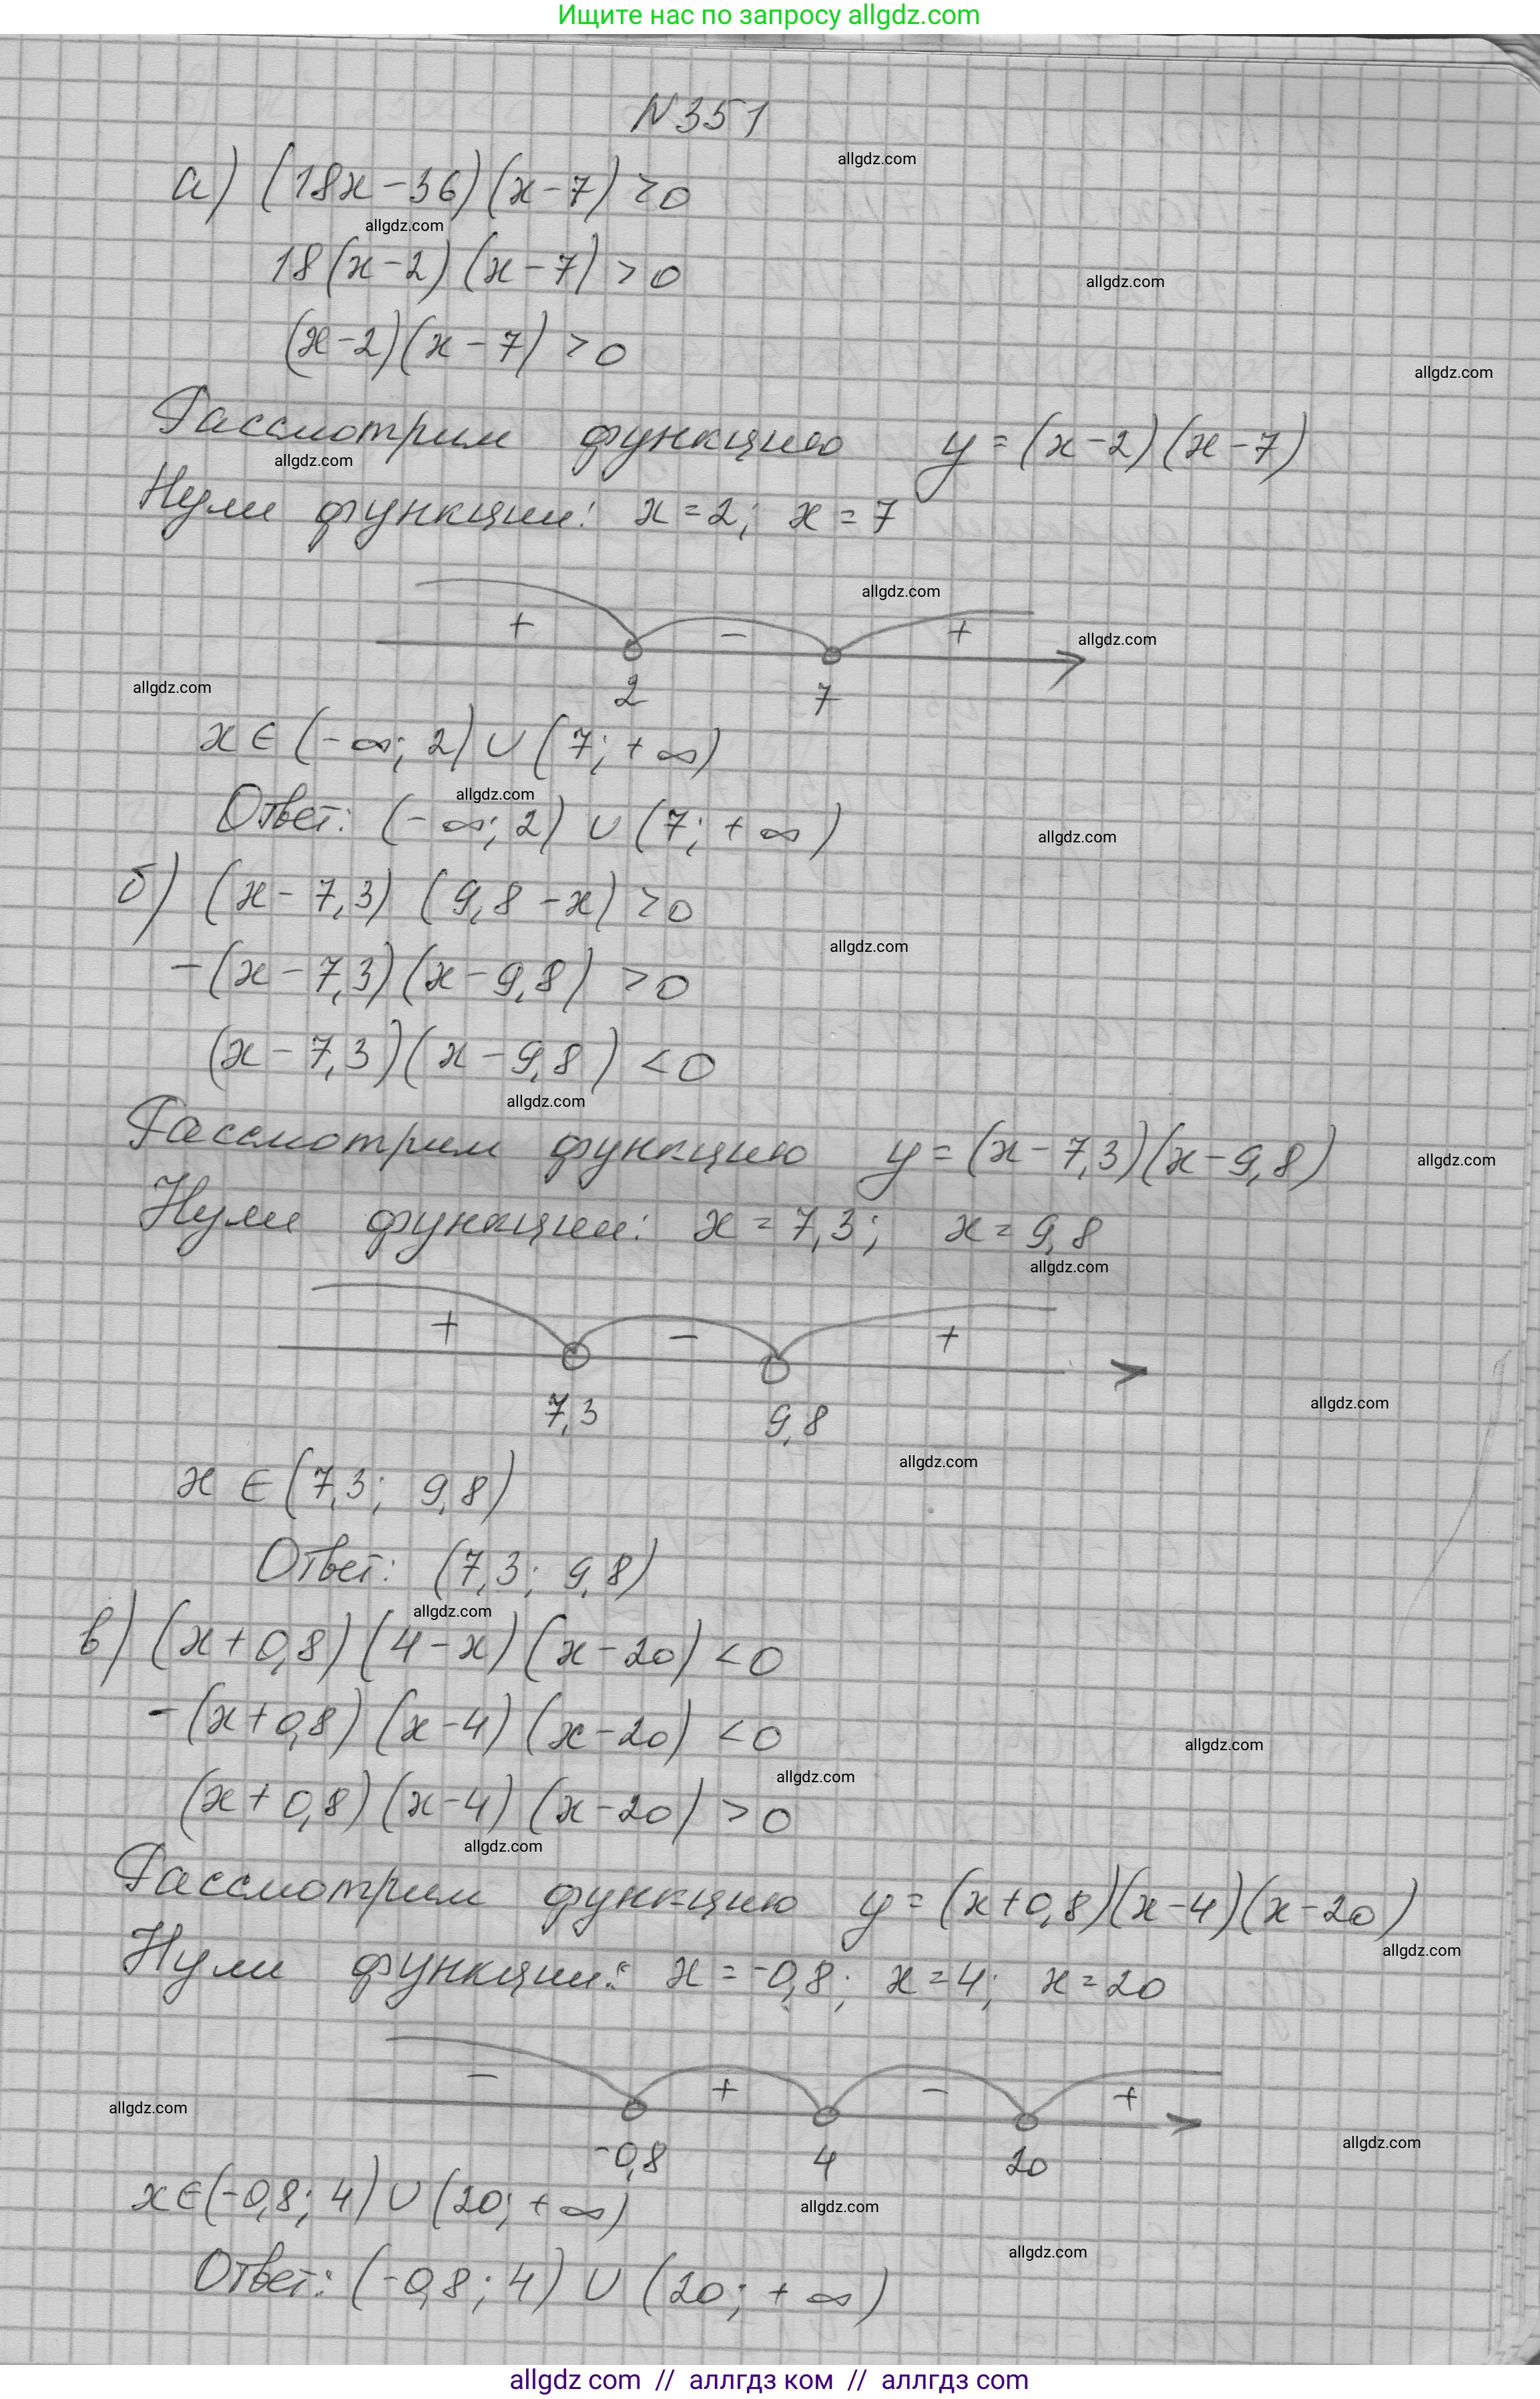 Ищите нас по запросу allgdz.com
N351
allgdz.com
а) (18x-36)(x-7)>0
allgdz.com
18(x-2)(x-7)>0
allgdz.com
(x-2)(x-7)>0
allgdz.com
Рассмотрим функцию y=(x-2)(x-7)
allgdz.com
Нули функции: x=2; x=7
allgdz.com
+ - +
allgdz.com
allgdz.com
2 7
x∈(-∞; 2)∪(7; +∞)
allgdz.com
Ответ: (-∞; 2)∪(7; +∞)
allgdz.com
б) (x-7,3)(9,8-x)>0
allgdz.com
-(x-7,3)(x-9,8)>0
(x-7,3)(x-9,8)<0
allgdz.com
Рассмотрим функцию y=(x-7,3)(x-9,8)
allgdz.com
Нули функции: x=7,3; x=9,8
allgdz.com
+ - +
7,3 9,8
allgdz.com
allgdz.com
x∈(7,3; 9,8)
Ответ: (7,3; 9,8)
allgdz.com
в) (x+0,8)(4-x)(x-20)<0
-(x+0,8)(x-4)(x-20)<0
allgdz.com
allgdz.com
(x+0,8)(x-4)(x-20)>0
allgdz.com
Рассмотрим функцию y=(x+0,8)(x-4)(x-20)
allgdz.com
Нули функции: x=-0,8; x=4; x=20
- + - +
allgdz.com
allgdz.com
-0,8 4 20
x∈(-0,8; 4)∪(20; +∞)
allgdz.com
allgdz.com
Ответ: (-0,8; 4)∪(20; +∞)
allgdz.com // аллгдз ком // аллгдз com